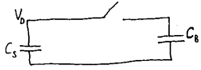 V_D
C_S
C_B